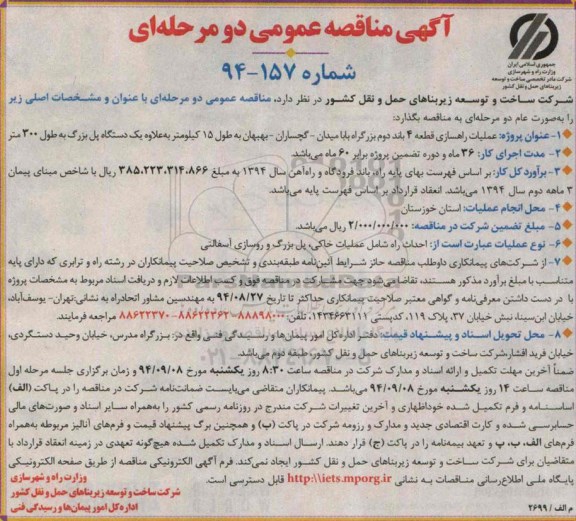 آگهی مناقصه عمومی دو مرحله‌ای
شماره ۱۵۷-۹۴
جمهوری اسلامی ایران
وزارت راه و شهرسازی
شرکت مادر تخصصی ساخت و توسعه
زیربناهای حمل و نقل کشور
شرکت ساخت و توسعه زیربناهای حمل و نقل کشور در نظر دارد، مناقصه عمومی دو مرحله‌ای با عنوان و مشخصات اصلی زیر
را به‌صورت عام دو مرحله‌ای به مناقصه بگذارد:
۱- عنوان پروژه: عملیات راهسازی قطعه ۴ باند دوم بزرگراه بابا میدان - گچساران - بهبهان به طول ۱۵ کیلومتر به‌علاوه یک دستگاه پل بزرگ به طول ۳۰۰ متر
۲- مدت اجرای کار: ۳۶ ماه و دوره تضمین پروژه برابر ۶۰ ماه می‌باشد.
۳- برآورد کل کار: بر اساس فهرست بهای پایه راه، باند فرودگاه و راه‌آهن سال ۱۳۹۴ به مبلغ ۳۸۵،۲۲۳،۳۱۴،۸۶۶ ریال با شاخص مبنای پیمان
۳ ماهه دوم سال ۱۳۹۴ می‌باشد. انعقاد قرارداد بر اساس فهرست پایه می‌باشد.
۴- محل انجام عملیات: استان خوزستان
۵- مبلغ تضمین شرکت در مناقصه: ۲/۰۰۰/۰۰۰/۰۰۰ ریال می‌باشد.
۶- نوع عملیات عبارت است از: احداث راه شامل عملیات خاکی، پل بزرگ و روسازی آسفالتی
۷- از شرکت‌های پیمانکاری داوطلب مناقصه حائز شرایط آئین‌نامه طبقه‌بندی و تشخیص صلاحیت پیمانکاران در رشته راه و ترابری که دارای پایه
متناسب با مبلغ برآورد مذکور هستند، تقاضا می‌شود جهت شرکت در مناقصه فوق و کسب اطلاعات لازم و دریافت اسناد مربوط به مشخصات پروژه
با در دست داشتن معرفی‌نامه و گواهی معتبر صلاحیت پیمانکاری حداکثر تا تاریخ ۹۴/۰۸/۲۷ به مهندسین مشاور اتحادراه به نشانی:تهران- یوسف‌آباد،
خیابان ابن‌سینا، نبش خیابان ۳۷، پلاک ۱۱۹، کدپستی ۱۴۳۴۶۶۳۱۱۱، تلفن: ۸۸۸۹۸۰۰۰-۸۸۶۲۲۳۶۲-۸۸۶۲۲۳۷۰ مراجعه فرمایند.
۸- محل تحویل اسناد و پیشنهاد قیمت: دفتر اداره‌کل امور پیمان‌ها و رسیدگی فنی واقع در: بزرگراه مدرس، خیابان وحید دستگردی،
خیابان فرید افشار، شرکت ساخت و توسعه زیربناهای حمل و نقل کشور، طبقه دوم می‌باشد.
ضمناً آخرین مهلت تکمیل و ارائه اسناد و مدارک شرکت در مناقصه ساعت ۸:۳۰ روز یکشنبه مورخ ۹۴/۰۹/۰۸ و زمان برگزاری جلسه مرحله اول
مناقصه ساعت ۱۴ روز یکشنبه مورخ ۹۴/۰۹/۰۸ می‌باشد. پیمانکاران متقاضی می‌بایست ضمانت‌نامه شرکت در مناقصه را در پاکت (الف)
اساسنامه و فرم تکمیل شده خوداظهاری و آخرین تغییرات شرکت مندرج در روزنامه رسمی کشور را به‌همراه سایر اسناد و صورت‌های مالی
حسابرسی شده و کارت اقتصادی جدید و مدارک و رزومه شرکت در پاکت (ب) و همچنین برگ پیشنهاد قیمت و فرم‌های آنالیز مربوطه به‌همراه
فرم‌های الف، ب، پ و تعهد بیمه‌نامه را در پاکت (ج) قرار دهند. ارسال اسناد و مدارک تکمیل شده هیچ‌گونه تعهدی در زمینه انعقاد قرارداد با
متقاضیان برای شرکت ساخت و توسعه زیربناهای حمل و نقل کشور ایجاد نمی‌کند. فرم آگهی الکترونیکی مناقصه از طریق صفحه الکترونیکی
پایگاه ملی اطلاع‌رسانی مناقصات به نشانی http://iets.mporg.ir قابل دسترسی است.
وزارت راه و شهرسازی
شرکت ساخت و توسعه زیربناهای حمل و نقل کشور
اداره کل امور پیمان‌ها و رسیدگی فنی
م الف / ۲۶۹۹